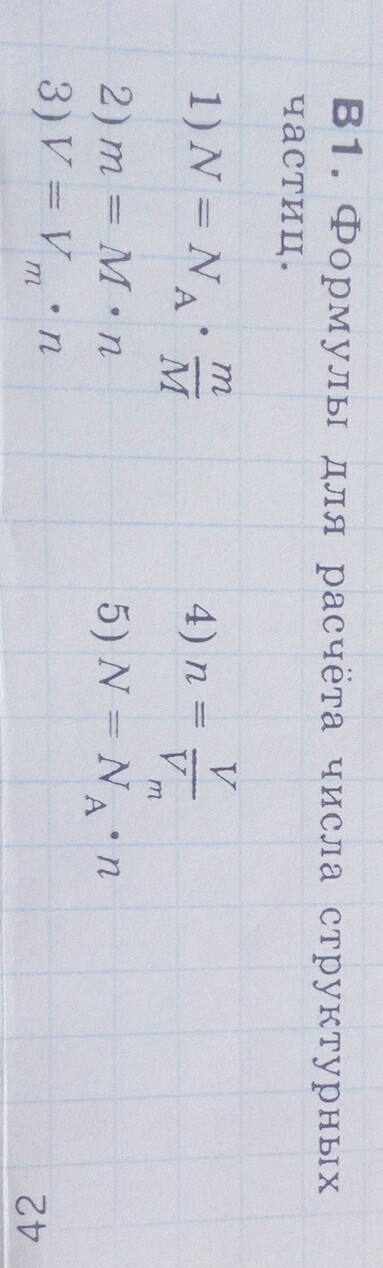 В1. Формулы для расчёта числа структурных
частиц.
1) N = N_A · m/M
2) m = M · n
3) V = V_m · n
4) n = V/V_m
5) N = N_A · n
42